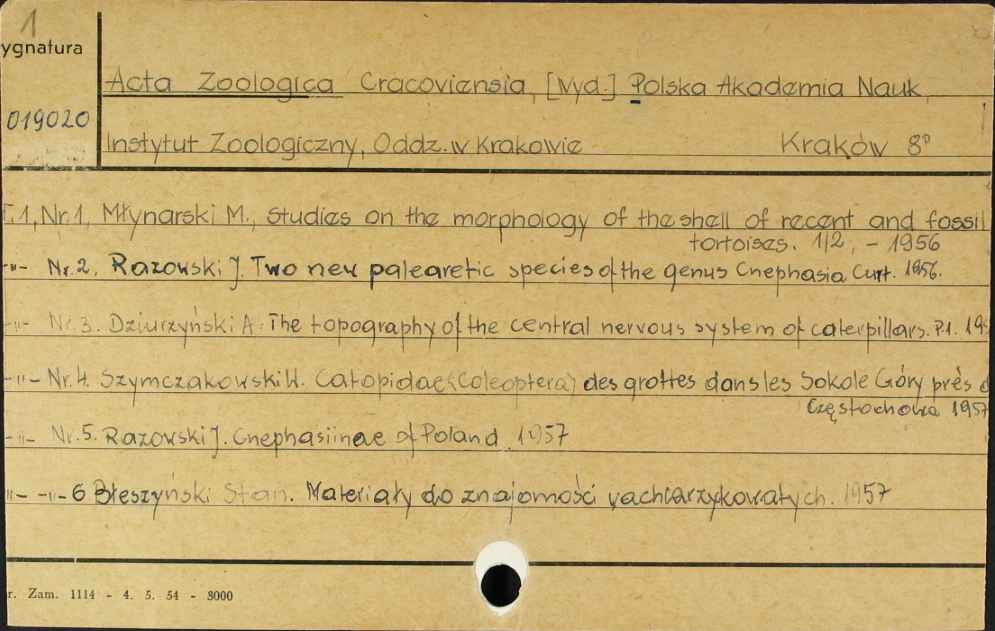 1
ygnatura
Acta Zoologica Cracoviensia, [Wyd.] Polska Akademia Nauk,
019020
Instytut Zoologiczny, Oddz. w Krakowie Kraków 8°
T.1, Nr.1, Młynarski M., Studies on the morphology of the shell of recent and fossil
tortoises. 1/2, - 1956
-"- Nr.2. Razowski J. Two new palearctic species of the genus Cnephasia Curt. 1956.
-"- Nr.3. Dziurzyński A. The topography of the central nervous system of caterpillars. P.1. 19
-"- Nr.4. Szymczakowski W. Catopidae (Coleoptera) des grottes dans les Sokole Góry près d
Częstochowa 1957
-"- Nr.5. Razowski J. Cnephasiinae of Poland 1957
"- -"- 6 Błeszyński Stan. Materiały do znajomości wachlarzykowatych. 1957
r. Zam. 1114 - 4. 5. 54 - 8000